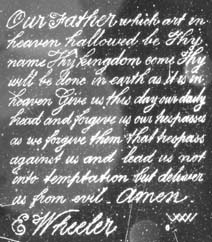 Our Father which art in
heaven hallowed be Thy
name Thy kingdom come Thy
will be done in earth as it is in
heaven Give us this day our daily
bread and forgive us our trespasses
as we forgive them that trespass
against us and lead us not
into temptation but deliver
us from evil. Amen.
E Wheeler